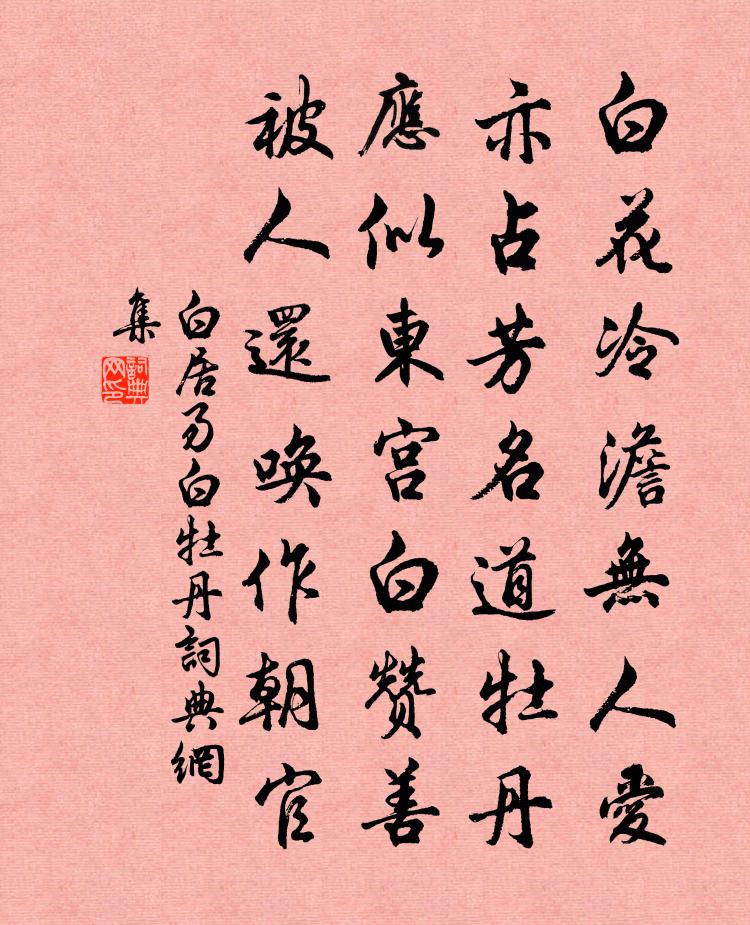 白花冷澹無人愛
亦占芳名道牡丹
應似東宮白贊善
被人還喚作朝官
白居易白牡丹詞典網
集
詞典网印